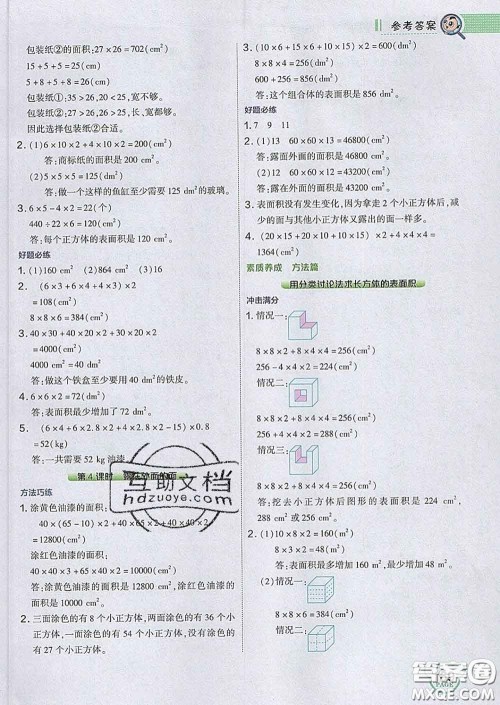 参考答案
包装纸②的面积：27×26=702(cm²)
15+5+5=25(cm)
5+8+5+8=26(cm)
包装纸①：35>26,20<25,宽不够。
包装纸②：27>26,26>25,长、宽都够。
因此选择包装纸②合适。
4.(1)6×10×2+4×10×2=200(cm²)
答：商标纸的面积是 200 cm²。
(2)5×5×5=125(dm²)
答：做一个这样的鱼缸至少需要 125 dm²的玻璃。
5.6×5-4×2=22(个)
440÷22×6=120(cm²)
答：每个正方体的表面积是 120 cm²。
好题必练
1.(1)160 (2)24 (3)54
2.8×8×6=384(cm²)
3.40×30+40×20×2+30×20×2
=4000(cm²)
4000 cm²=40 dm²
答：做这个铁盒至少要用 40 dm²的铁皮。
4.
答：表面积最少增加了 72 dm²。
5.
=52(kg)
答：一共需要 52 kg油漆。
第 4 课时 露在外面的面
方法巧练
1.涂黄色油漆的面积：
40×(65-40)×2+40×65×2+40×65×2
=12800(cm²)
涂红色油漆的面积：
40×40×3+65×40×2=10000(cm²)
答：涂黄色油漆的面积是 12800 cm²,涂红色油漆的
面积是 10000 cm²。
2.三面涂色的有 8 个小正方体,两面涂色的有 36 个小
正方体,一面涂色的有 54 个小正方体,没有涂色的有
27 个小正方体。
3.(10×6+15×6+10×15)×2=600(dm²)
8×8×4=256(dm²)
600+256=856(dm²)
答：这个组合体的表面积是 856 dm²。
好题必练
1.7 9 11
2.(1)13 60×60×13=46800(cm²)
答：露在外面的面积是 46800 cm²。
(2)60×60×13=46800(cm²)
答：露在外面的面积是 46800 cm²。
3.表面积没有发生变化,因为拿走 2 个小正方体后,减
少的面与其他小正方体又露出的面一样多。
4.(20×15+20×10+15×10)×2+4×4×4=
1364(cm²)
素质养成 方法篇
用分类讨论法求长方体的表面积
冲击满分
1.情况一：
8×8×2+8×4×4=256(cm²)
256-4×4×2=224(cm²)
情况二：
8×8×2+8×4×4=256(cm²)
256+4×4×2=288(cm²)
情况三：
8×8×2+8×4×4=256(cm²)
答：挖去小正方体后图形的表面积是 224 cm²,
288 cm²或 256 cm²。
2.(1)10×8×2=160(m²)
8×3×2=48(m²)
答：表面积最多增加 160 m²,最少增加 48 m²。
(2)情况一：
8×8×6=384(cm²)
情况二：
互助文档
hdzuoye.com
PAGE
答案圈
MXQE.COM